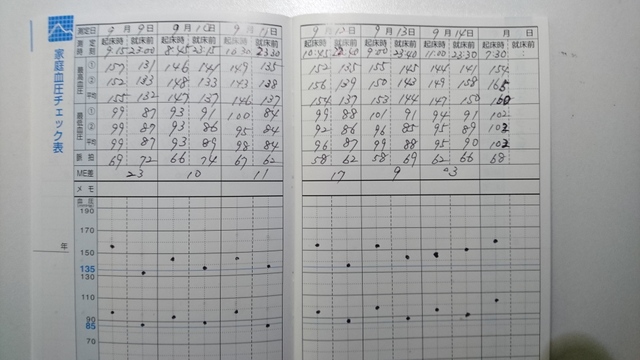 家庭血圧チェック表
年
測定日 9月9日 9月10日 9月11日 9月12日 9月13日 9月14日 月 日
測定時刻 起床時 就床前 起床時 就床前 起床時 就床前 起床時 就床前 起床時 就床前 起床時 就床前 起床時 就床前
9:15 23:00 8:45 23:15 10:30 23:30 10:45 9:00 23:40 11:00 23:30 7:30 :
最高血圧 ① 157 131 146 141 149 135 152 135 155 145 144 141 154
② 152 133 148 133 143 138 156 139 150 143 149 158 165
平均 155 132 147 137 146 137 154 137 153 144 147 150 160
最低血圧 ① 99 87 93 91 100 84 99 88 101 91 94 91 102
② 99 87 93 86 95 84 92 86 96 85 95 89 102
平均 99 87 93 89 98 84 96 87 99 88 95 90 102
脈拍 69 72 66 74 67 62 58 62 58 69 62 66 68
ME差 23 10 11 17 9 3
メモ
血圧
190
170
150
135
130
110
90
85